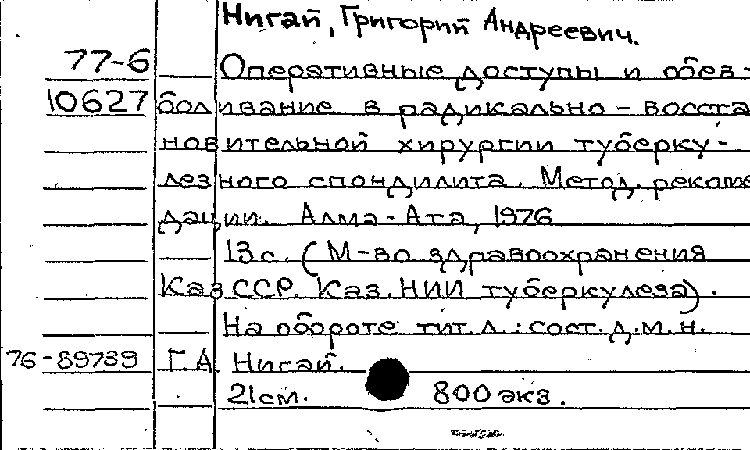 Нигай, Григорий Андреевич.
77-6 Оперативные доступы и обез-
10627 боливание в радикально-восста
новительной хирургии туберку-
лезного спондилита. Метод. рекоме
дации. Алма-Ата, 1976
13с. (М-во здравоохранения
КазССР. Каз. НИИ туберкулеза).
На обороте тит. л.: сост. д.м.н.
76-89789 Г.А. Нигай.
21см. 800 экз.